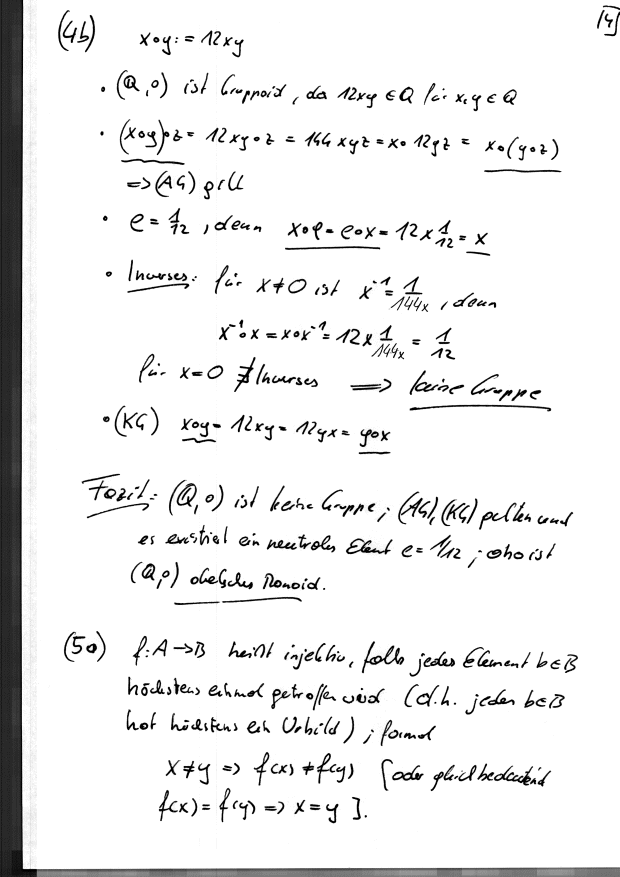 14
(4b) x∘y := 12xy
• (Q,∘) ist Gruppoid, da 12xy ∈ Q für x,y ∈ Q
• (x∘y)∘z = 12xy∘z = 144xyz = x∘12yz = x∘(y∘z)
=> (AG) gilt
• e = 1/12, denn x∘e = e∘x = 12x 1/12 = x
• Inverses: für x≠0 ist x⁻¹ = 1/144x, denn
x⁻¹∘x = x∘x⁻¹ = 12x 1/144x = 1/12
für x=0 ∄ Inverses => keine Gruppe
• (KG) x∘y = 12xy = 12yx = y∘x
Fazit: (Q,∘) ist keine Gruppe; (AG), (KG) gelten und
es existiert ein neutrales Element e = 1/12; also ist
(Q,∘) abelsches Monoid.
(5a) f: A → B heißt injektiv, falls jedes Element b∈B
höchstens einmal getroffen wird (d.h. jedes b∈B
hat höchstens ein Urbild); formal
x≠y => f(x) ≠ f(y) [oder gleichbedeutend
f(x) = f(y) => x=y ].